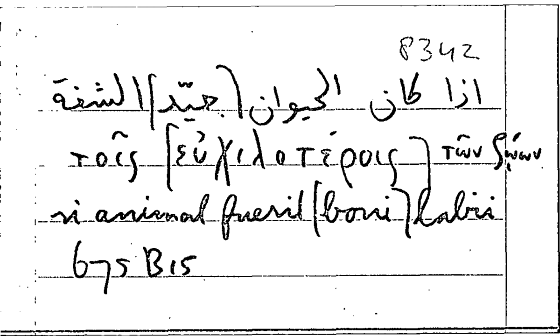 8342
اذا كان الحيوان [جيّد] الشفة
τοῖς [εὐχιλοτέροις] τῶν ζῴων
si animal fuerit [boni] labii
675 B15